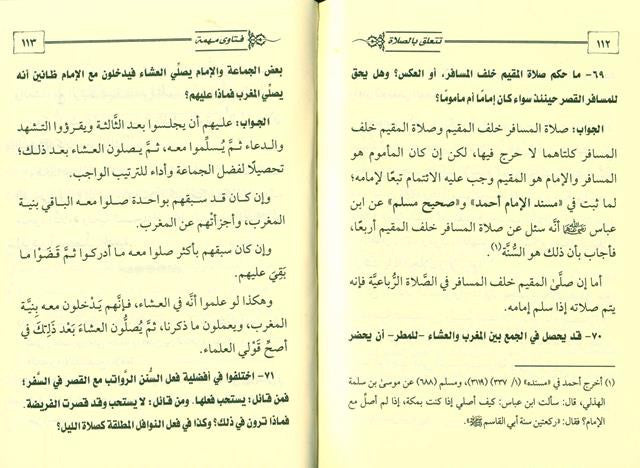 ١١٢
تتعلق بالصلاة
٦٩- ما حكم صلاة المقيم خلف المسافر، أو العكس؟ وهل يحق
للمسافر القصر حينئذ سواء كان إمامًا أم مأمومًا؟
الجواب: صلاة المسافر خلف المقيم وصلاة المقيم خلف
المسافر كلتاهما لا حرج فيها، لكن إن كان المأموم هو
المسافر والإمام هو المقيم وجب عليه الائتمام تبعًا لإمامه؛
لما ثبت في «مسند الإمام أحمد» و«صحيح مسلم» عن ابن
عباس أنَّه سئل عن صلاة المسافر خلف المقيم أربعًا،
فأجاب بأن ذلك هو السُّنَّة(١).
أما إن صلَّى المقيم خلف المسافر في الصَّلاة الرُّباعيَّة فإنه
يتم صلاته إذا سلم إمامه.
٧٠- قد يحصل في الجمع بين المغرب والعشاء -للمطر- أن يحضر
(١) أخرج أحمد في «مسنده» (١/ ٣٣٧) (٣١١٩)، ومسلم (٦٨٨) عن موسى بن سلمة
الهذلي، قال: سألت ابن عباس: كيف أصلي إذا كنت بمكة، إذا لم أصل مع
الإمام؟ فقال: «ركعتين سنة أبي القاسم ﷺ».
فتاوى مهمة
١١٣
بعض الجماعة والإمام يصلّي العشاء فيدخلون مع الإمام ظانين أنه
يصلّي المغرب فماذا عليهم؟
الجواب: عليهم أن يجلسوا بعد الثَّالثة ويقرؤوا التشهد
والدعاء ثمَّ يُسلِّموا معه، ثمَّ يصلون العشاء بعد ذلك؛
تحصيلًا لفضل الجماعة وأداء للترتيب الواجب.
وإن كان قد سبقهم بواحدة صلوا معه الباقي بنية
المغرب، وأجزأتهم عن المغرب.
وإن كان سبقهم بأكثر صلوا معه ما أدركوا ثمَّ قَضَوْا ما
بَقِيَ عليهم.
وهكذا لو علموا أنَّه في العشاء، فإنَّهم يَدْخلون معه بِنيَّة
المغرب، ويعملون ما ذكرنا، ثمَّ يُصلُّون العشاءَ بَعْد ذَلِكَ في
أصحِّ قَوْلي العلماء.
٧١- اختلفوا في أفضلية فعل السُّنن الرَّواتب مع القصر في السَّفر؛
فمن قائل: يستحب فعلها. ومن قائل: لا يستحب وقد قصرت الفريضة.
فماذا ترون في ذلك؟ وكذا في فعل النوافل المطلقة كصلاة الليل؟